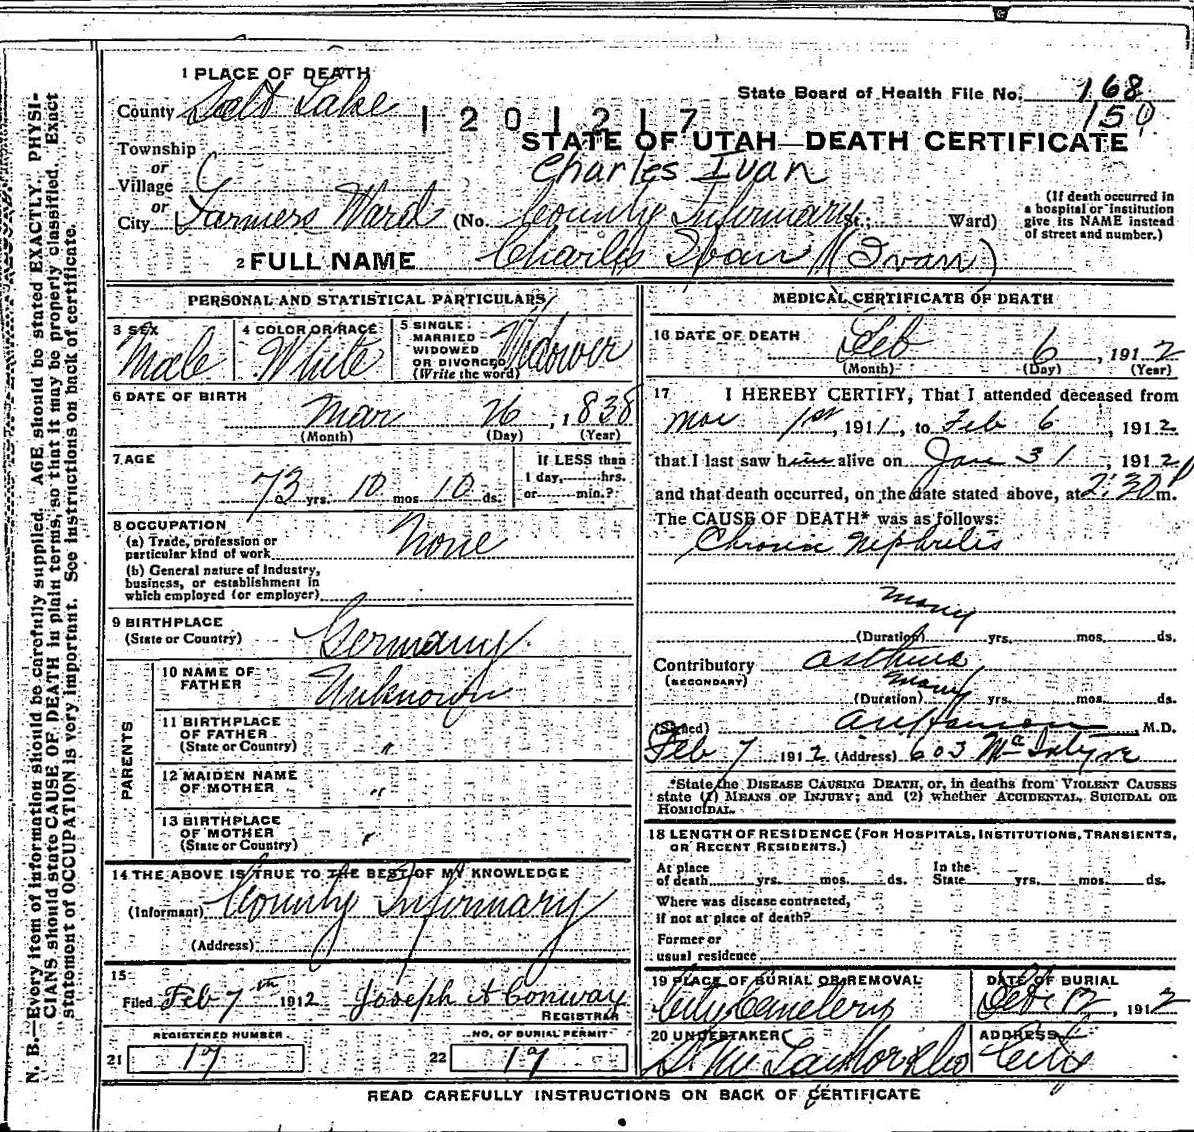 1 PLACE OF DEATH
County Salt Lake
State Board of Health File No. 168
150
1 2 0 1 2 1 7
STATE OF UTAH—DEATH CERTIFICATE
Township
or
Village
Charles Ivan
or
City Farmers Ward (No. County Infirmary St.; Ward)
(If death occurred in a hospital or institution give its NAME instead of street and number.)
2 FULL NAME Charles Ivan (Ivan)
PERSONAL AND STATISTICAL PARTICULARS
3 SEX Male
4 COLOR OR RACE White
5 SINGLE, MARRIED, WIDOWED OR DIVORCED (Write the word) Widower
6 DATE OF BIRTH
Mar 26, 1838
(Month) (Day) (Year)
7 AGE
73 yrs. 10 mos. 10 ds.
If LESS than 1 day,......hrs. or......min.?
8 OCCUPATION
(a) Trade, profession or particular kind of work None
(b) General nature of Industry, business, or establishment in which employed (or employer)
9 BIRTHPLACE
(State or Country) Germany
PARENTS
10 NAME OF FATHER Unknown
11 BIRTHPLACE OF FATHER (State or Country) "
12 MAIDEN NAME OF MOTHER "
13 BIRTHPLACE OF MOTHER (State or Country) "
14 THE ABOVE IS TRUE TO THE BEST OF MY KNOWLEDGE
(Informant) County Infirmary
(Address)
15
Filed Feb 7th 1912 Joseph A Conway
REGISTRAR
REGISTERED NUMBER
21 17
NO. OF BURIAL PERMIT
22 17
MEDICAL CERTIFICATE OF DEATH
16 DATE OF DEATH
Feb 6, 1912
(Month) (Day) (Year)
17 I HEREBY CERTIFY, That I attended deceased from
1st, 1911, to Feb 6, 1912
that I last saw him alive on Jan 31, 1912
and that death occurred, on the date stated above, at 2:30 P m.
The CAUSE OF DEATH* was as follows:
Chronic Nephritis
many
(Duration) yrs. mos. ds.
Contributory Asthma
(SECONDARY)
many
(Duration) yrs. mos. ds.
(Signed) M.D.
Feb 7 1912 (Address) 603 McIntyre
*State the DISEASE CAUSING DEATH, or, in deaths from VIOLENT CAUSES
state (1) MEANS OF INJURY; and (2) whether ACCIDENTAL, SUICIDAL OR
HOMICIDAL.
18 LENGTH OF RESIDENCE (FOR HOSPITALS, INSTITUTIONS, TRANSIENTS,
OR RECENT RESIDENTS.)
At place of death yrs. mos. ds. In the State yrs. mos. ds.
Where was disease contracted,
if not at place of death?
Former or
usual residence
19 PLACE OF BURIAL OR REMOVAL
City Cemetery
DATE OF BURIAL
Feb 12, 1912
20 UNDERTAKER
ADDRESS
City
READ CAREFULLY INSTRUCTIONS ON BACK OF CERTIFICATE
N. B.—Every item of information should be carefully supplied. AGE should be stated EXACTLY. PHYSI-
CIANS should state CAUSE OF DEATH in plain terms, so that it may be properly classified. Exact
statement of OCCUPATION is very important. See instructions on back of certificate.